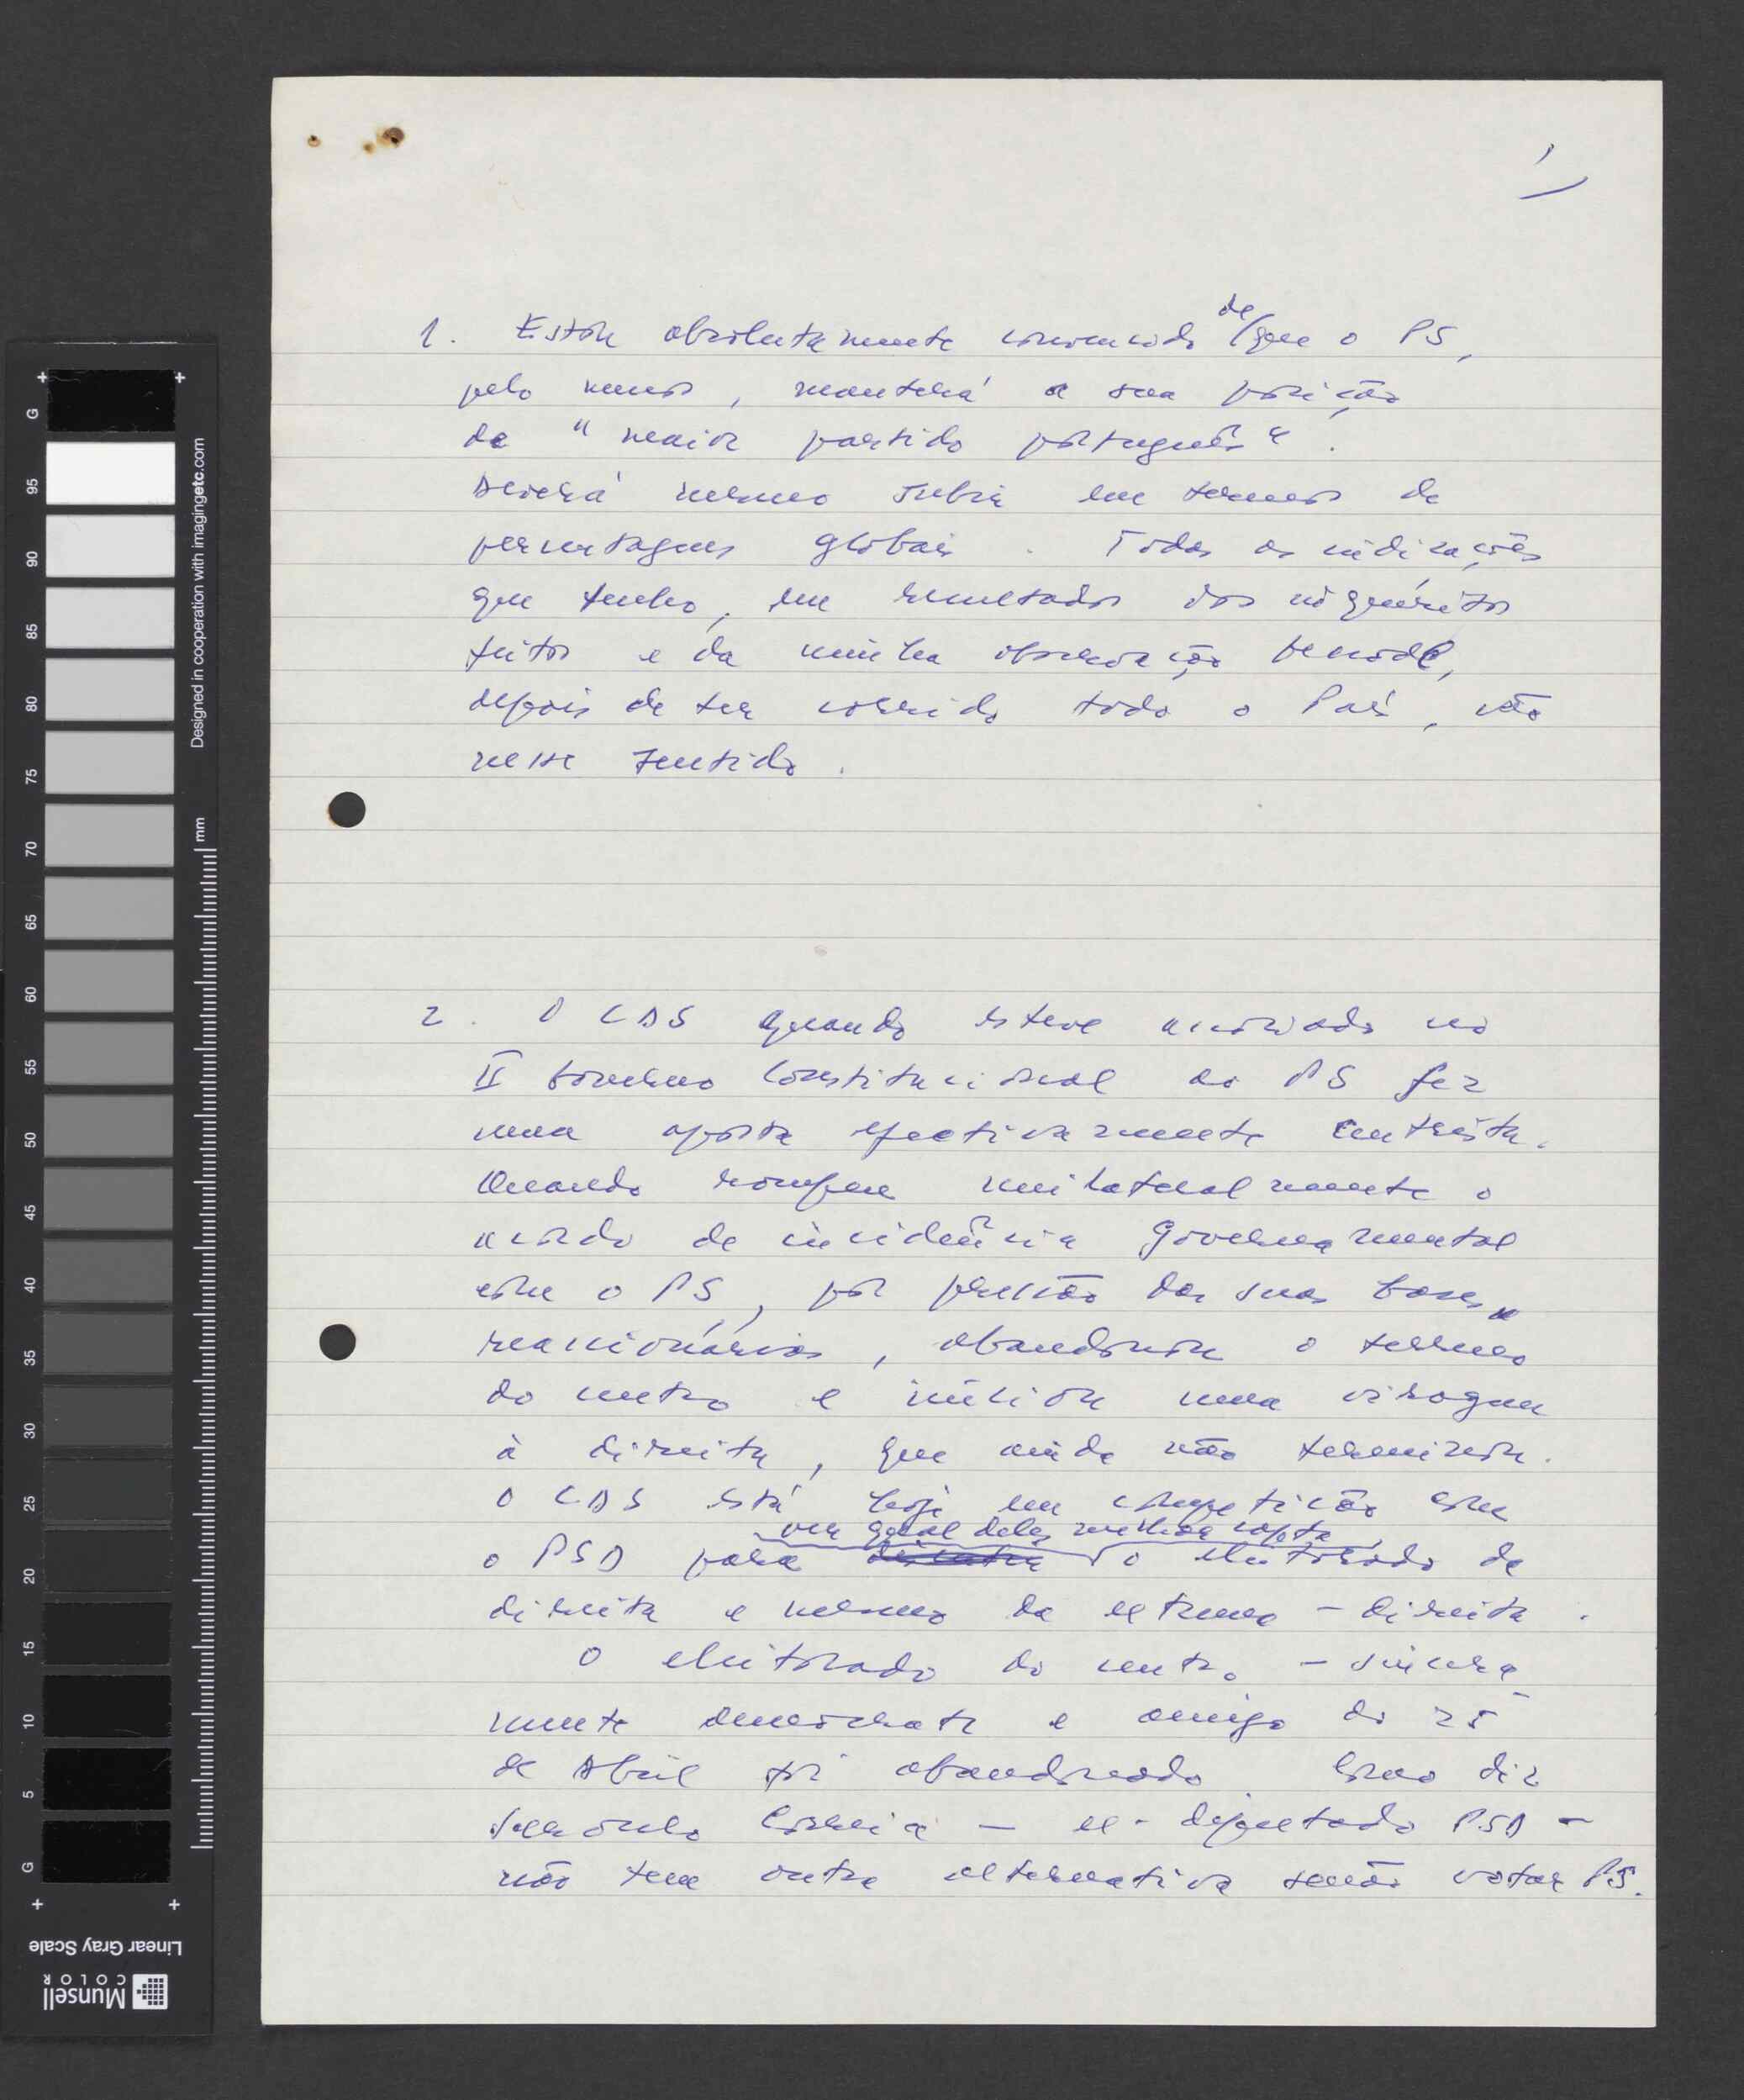 1
1. Estou absolutamente convencido de que o PS,
pelo menos, manterá a sua posição
de "maior partido português".
Deverá mesmo subir em termos de
percentagens globais. Todas as indicações
que tenho, em resultados dos inquéritos
feitos e da minha observação pessoal,
depois de ter corrido todo o País, vão
nesse sentido.
2. O CDS quando esteve associado no
II Governo Constitucional ao PS fez
uma aposta efectivamente centrista.
Quando rompeu unilateralmente o
acordo de incidência governamental
com o PS, por pressão das suas bases
reaccionárias, abandonou o terreno
do centro e iniciou uma viragem
à direita, que ainda não terminou.
O CDS está hoje em competição com
ver qual deles melhor capta
o PSD para disputar o eleitorado de
direita e mesmo da extrema-direita.
O eleitorado do centro - sincera
mente democrata e amigo do 25
de Abril foi abandonado. Como diz
Correia — ex-deputado PSD —
não tem outra alternativa senão votar PS.
G 95 90 85 80 75 70 65 60 55 50 45 40 35 30 25 20 15 10 5 G
mm
Designed in cooperation with imagingetc.com
Linear Gray Scale
Munsell
COLOR